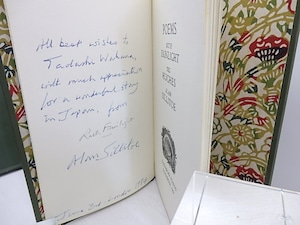 All best wishes to
Tadashi Wakana,
with much appreciation
for a wonderful stay
in Japan, from
Ruth Fainlight
Alan Sillitoe
June 3rd London
POEMS
RUTH
FAINLIGHT
TED
HUGHES
ALAN
SILLITOE